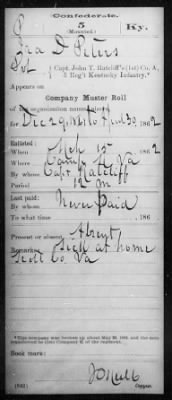 Confederate.
P 5 Ky.
(Mounted.)
Ira D Peters
Pvt, Capt. John T. Ratcliff's (1st) Co. A,
5 Reg't Kentucky Infantry.*
Appears on
Company Muster Roll
of the organization named above,
for Dec 29, 1861 to April 30, 1862
Enlisted:
When 12 1862
Where Camp Va
By whom Capt. Ratcliff
Period 12 M
Last paid:
By whom Never Paid
To what time , 186
Present or absent Absent
Remarks: Sick at home
Scott Co. Va
*This company was broken up about May
Book mark:
(642) Copyist.